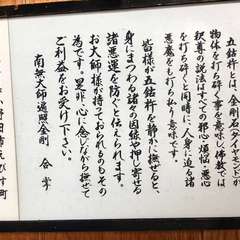 五鈷杵とは、金剛石(ダイヤモンド)が
物体を打ち砕く事を意味し仏教では
釈尊の説法はすべての邪心 煩悩 悪心
を打ち砕くと同時に、人身に迫る諸
悪魔をも打ち払う意味です。
皆様が五鈷杵を静かに撫せると、
身にまつわる諸々の因縁や押し寄せる
諸悪運を防ぐと伝えられます。
お大師様が持ておられるのもその
為です。是非心に念じながら撫せて
ご利益をお受け下さい。
南無大師遍照金剛 合掌